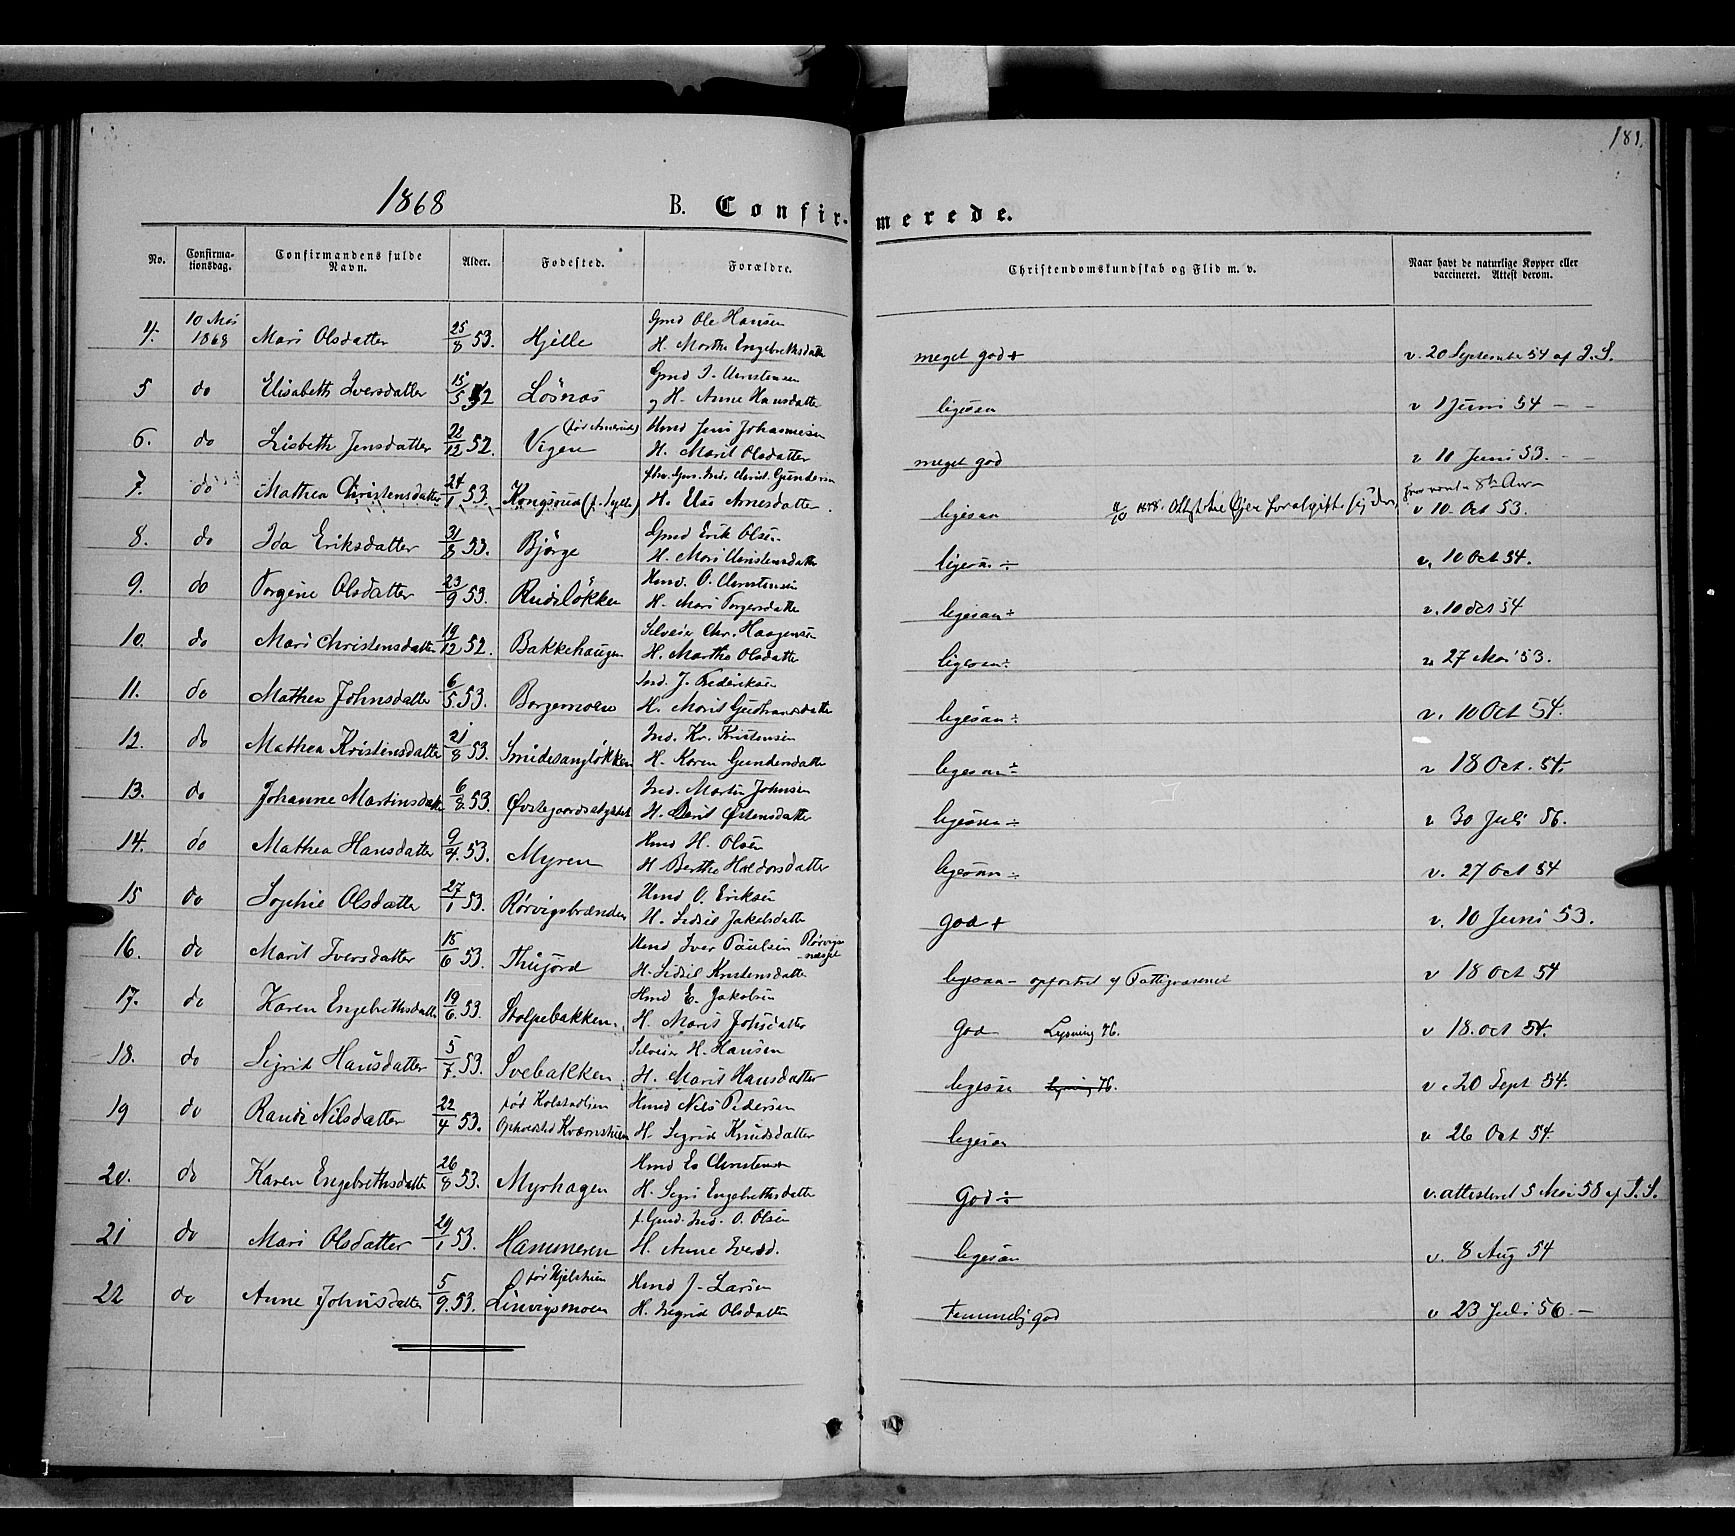 181.
1868 B. Confirmerede.
No. Confirmationsdag. Confirmandens fulde Navn. Alder. Fødested. Forældre. Christendomskundskab og Flid m. v. Naar havt de naturlige Kopper eller vaccineret. Attest derom.
4. 10 Mai 1868 Mari Olsdatter 25/8 53. Hjelle Gmd Ole Hansen H. Marthe Engebrethsdatter meget god + v. 20 September 54 af
5 do Elisabeth Iversdatter 15/5 52 Løsnæs Gmd I. Christensen og H. Anne Hansdatter ligesaa v 1 Juni 54 -
6. do Lisbeth Jensdatter 22/12 52. Vigen Hmd Jens Johannesen H. Marit Olsdatter meget god v 10 Juni 53. -
7. do Mathea Christensdatter 24/1 53. Christ. Gundersen H. Else Arnesdatter ligesaa 1878. v 10. Oct 53.
8. do Ida Eriksdatter 31/8 53. Bjørge Gmd Erik Olsen H. Mari Christensdatter ligesaa ÷ v. 10 Oct 54.
9. do Torgine Olsdatter 23/9 53. Rudsløkken Hmd. O. Christensen H. Mari Torgersdatter ligesaa ÷ v. 10 oct 54
10. do Mari Christensdatter 19/12 52. Bakkehaugen Selveier Chr. Haagensen H. Marthe Olsdatter ligesaa ÷ v 27 Mai 53.
11. do Mathea Johnsdatter 6/5 53. Borgemoen Ind. J. Frederiksen H. Marit Gudbrandsdatter ligesaa ÷ v. 10 Oct 54.
12. do Mathea Kristensdatter 21/8 53. Ind. Kr. Kristensen H. Karen Gundersdatter ligesaa ÷ v 18 Oct. 54.
13. do Johanne Martinsdatter 6/8 53. Ind. Martin Johnsen H. Østensdatter ligesaa ÷ v 30 Juli 56.
14. do Mathea Hansdatter 9/4 53. Myren Hmd H. Olsen H Berthe Haldorsdatter ligesaa ÷ v. 27 Oct 54
15 do Sophie Olsdatter 27/1 53. Rørvigsbrænden Hmd O. Eriksen H. Sidsel Jakobsdatter god + v. 10 Juni 53.
16. do Marit Iversdatter 15/6 53. Thujord Hmd Iver Paulsen H. Sidsel Kristensdatter ligesaa - opfostret af Fattigvæsenet v 18 Oct 54
17. do Karen Engebrethsdatter 19/6 53. Stolpebakken. Hmd E. Jakobsen H. Marit Johsdatter God Lysning 76. v 18. Oct 54.
18. do Sigrid Hansdatter 5/7 53. Svebakken Selveier H. Hansen H. Marit Hansdatter ligesaa Lysning 76. v. 20 Sept 54.
19 do Randi Nilsdatter 22/4 53. Hmd Nils Pedersen H. Sigrid Knudsdatter ligesaa v 26 Oct 54.
20. do Karen Engebrethsdatter 26/8 53. Myrhagen Hmd E. Christensen H. Sigri Engebrethsdatter God ÷ v. attesteret 5 Mai 58 af
21 do Mari Olsdatter 29/1 53. Hammeren f. Gmd. Ind. O. Olsen H. Anne Iversd. ligesaa v. 8 Aug 54
22 do Anne Johnsdatter 5/9 53. Hmd J. Larsen H. Ingrid Olsdatter temmelig god v 23 Juli 56 -